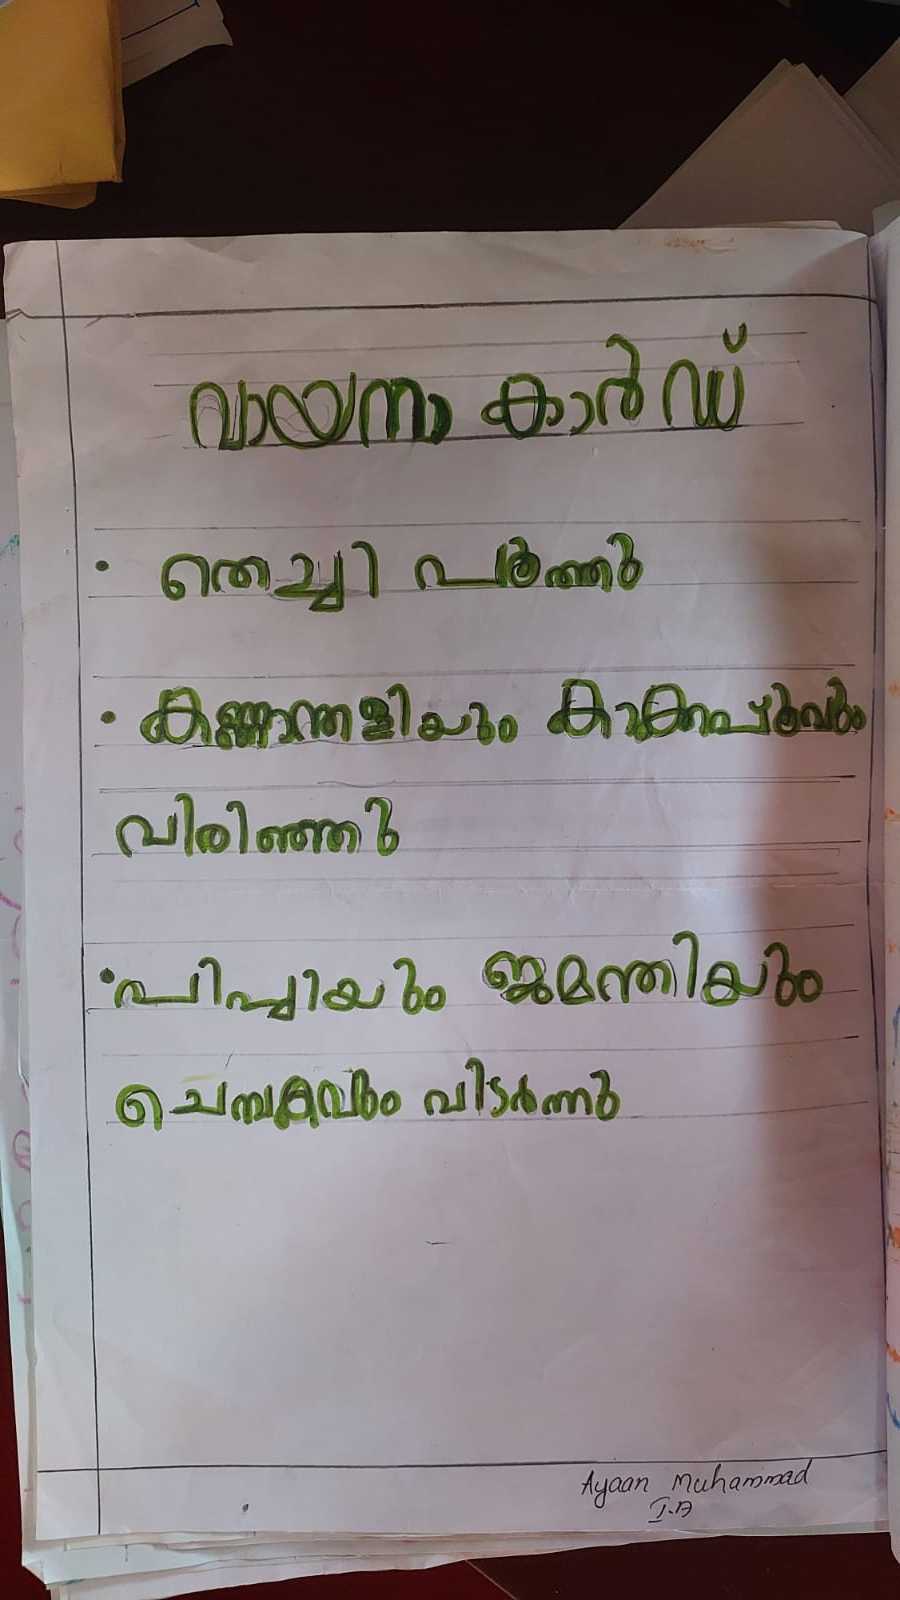 വായന കാർഡ്
• തെച്ചി പൂത്തു
• കണ്ണാന്തളിയും കാക്കപ്പൂവും
വിരിഞ്ഞു
• പിച്ചിയും ജമന്തിയും
ചെമ്പകവും വിടർന്നു
Ayaan Muhammad
I-A